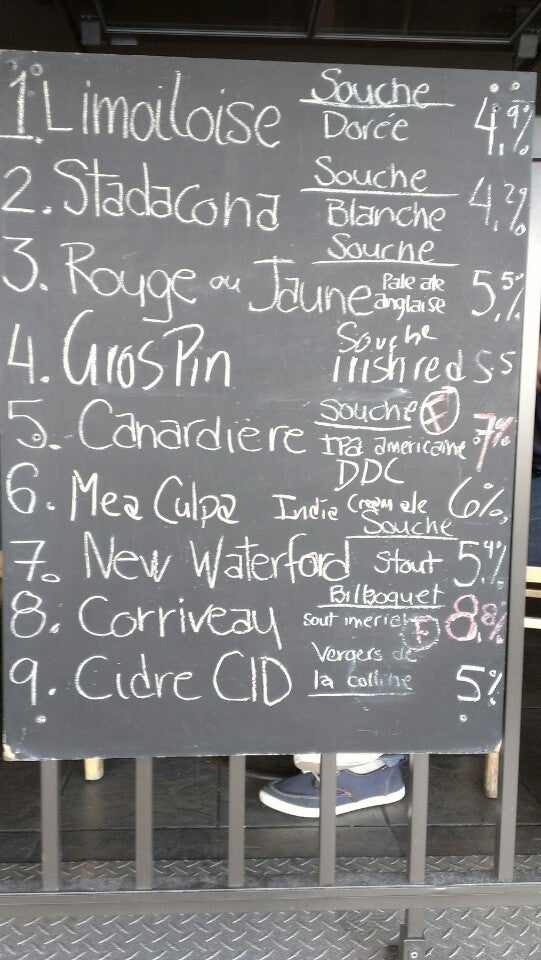 1. Limoiloise Souche Dorée 4,9%
2. Stadacona Souche Blanche 4,2%
3. Rouge ou Jaune Souche Pale ale anglaise 5,5%
4. GrosPin Souche Irish red 5,5
5. Canardière Souche F IPA américaine 7%
6. Mea Culpa DDC India Cream ale 6%
7. New Waterford Souche Stout 5,4%
8. Corriveau Bilboquet F 8,8%
9. Cidre CID Vergers de la colline 5%